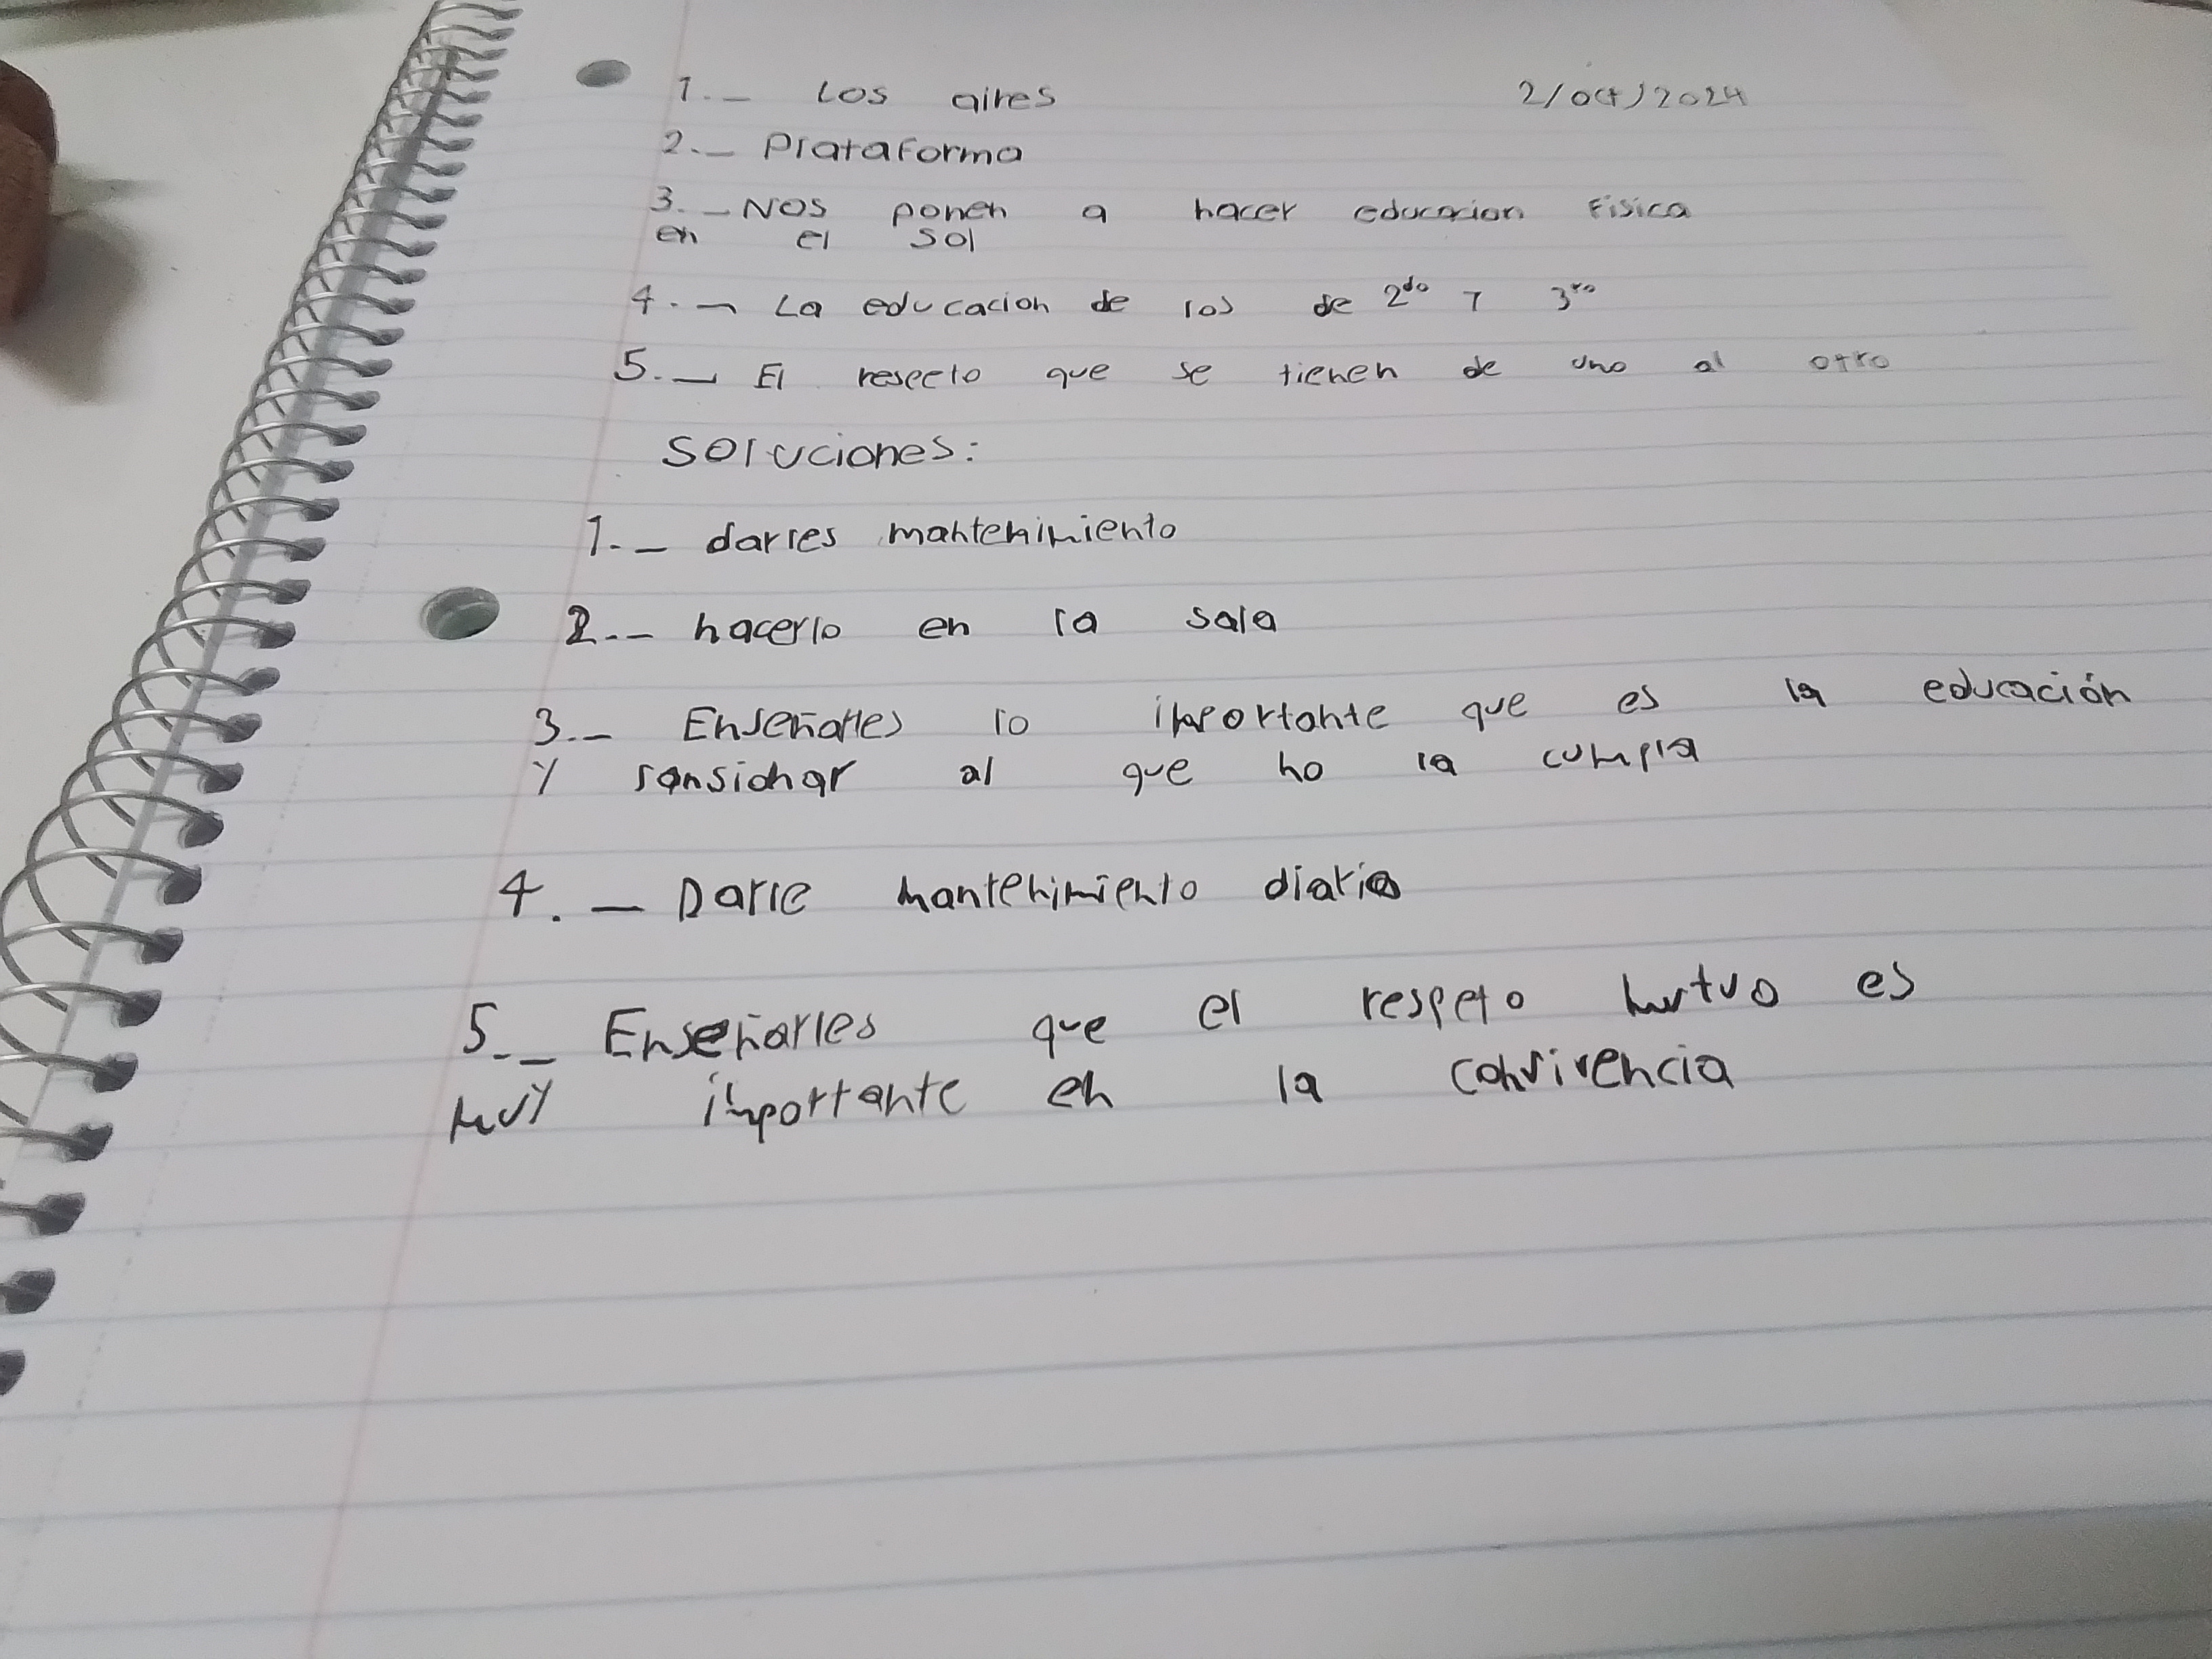 1._ Los aires 2/oct/2024
2._ Plataforma
3._ Nos ponen a hacer educacion Fisica
en el sol
4._ La educacion de los de 2do y 3ro
5._ El respeto que se tienen de uno al otro
Soluciones:
1._ darles mantenimiento
2._ hacerlo en la sala
3._ Enseñarles lo importante que es la educación
y sansionar al que no la cumpla
4._ Darle mantenimiento diario
5._ Enseñarles que el respeto mutuo es
muy importante en la convivencia